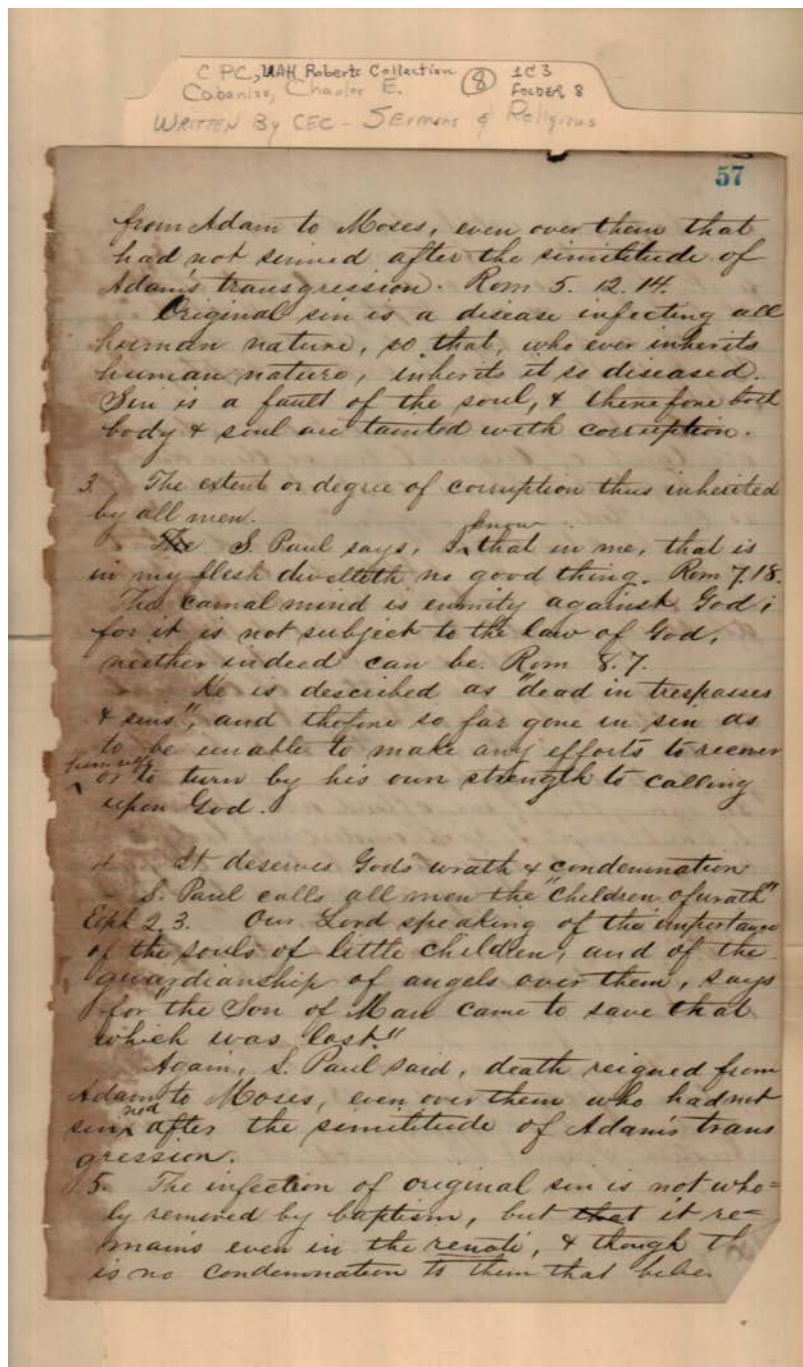 CPC, UAH Roberts Collection (8) 1C3
Cabaniss, Charles E. FOLDER 8
WRITTEN By CEC - SErmons & Religious
57
from Adam to Moses, even over them that
had not sinned after the similitude of
Adam's transgression. Rom 5. 12.14.
Original sin is a disease infecting all
human nature, so that, who ever inherits
human nature, inherits it so diseased.
Sin is a fault of the soul, & therefore both
body & soul are tainted with corruption.
3. The extent or degree of corruption thus inherited
by all men.
The S. Paul says, I know that in me, that is
in my flesh dwelleth no good thing. Rom 7.18.
The carnal mind is enmity against God;
for it is not subject to the law of God,
neither indeed can be. Rom 8.7.
He is described as "dead in trespasses
& sins", and thefore so far gone in sin as
to be unable to make any efforts to recover
himself or to turn by his own strength to calling
upon God.
4. It deserves Gods wrath & condemnation
- S. Paul calls all men the "children of wrath"
Eph 2.3. Our Lord speaking of the importance
of the souls of little children, and of the
guardianship of angels over them, says
for "the Son of Man came to save that
which was lost."
Again, S. Paul said, death reigned from
Adam to Moses, even over them who had not
sinned after the similitude of Adam's trans
gression.
5. The infection of original sin is not who=
ly removed by baptism, but that it re=
mains even in the renati, & though
is no condemnation to them that